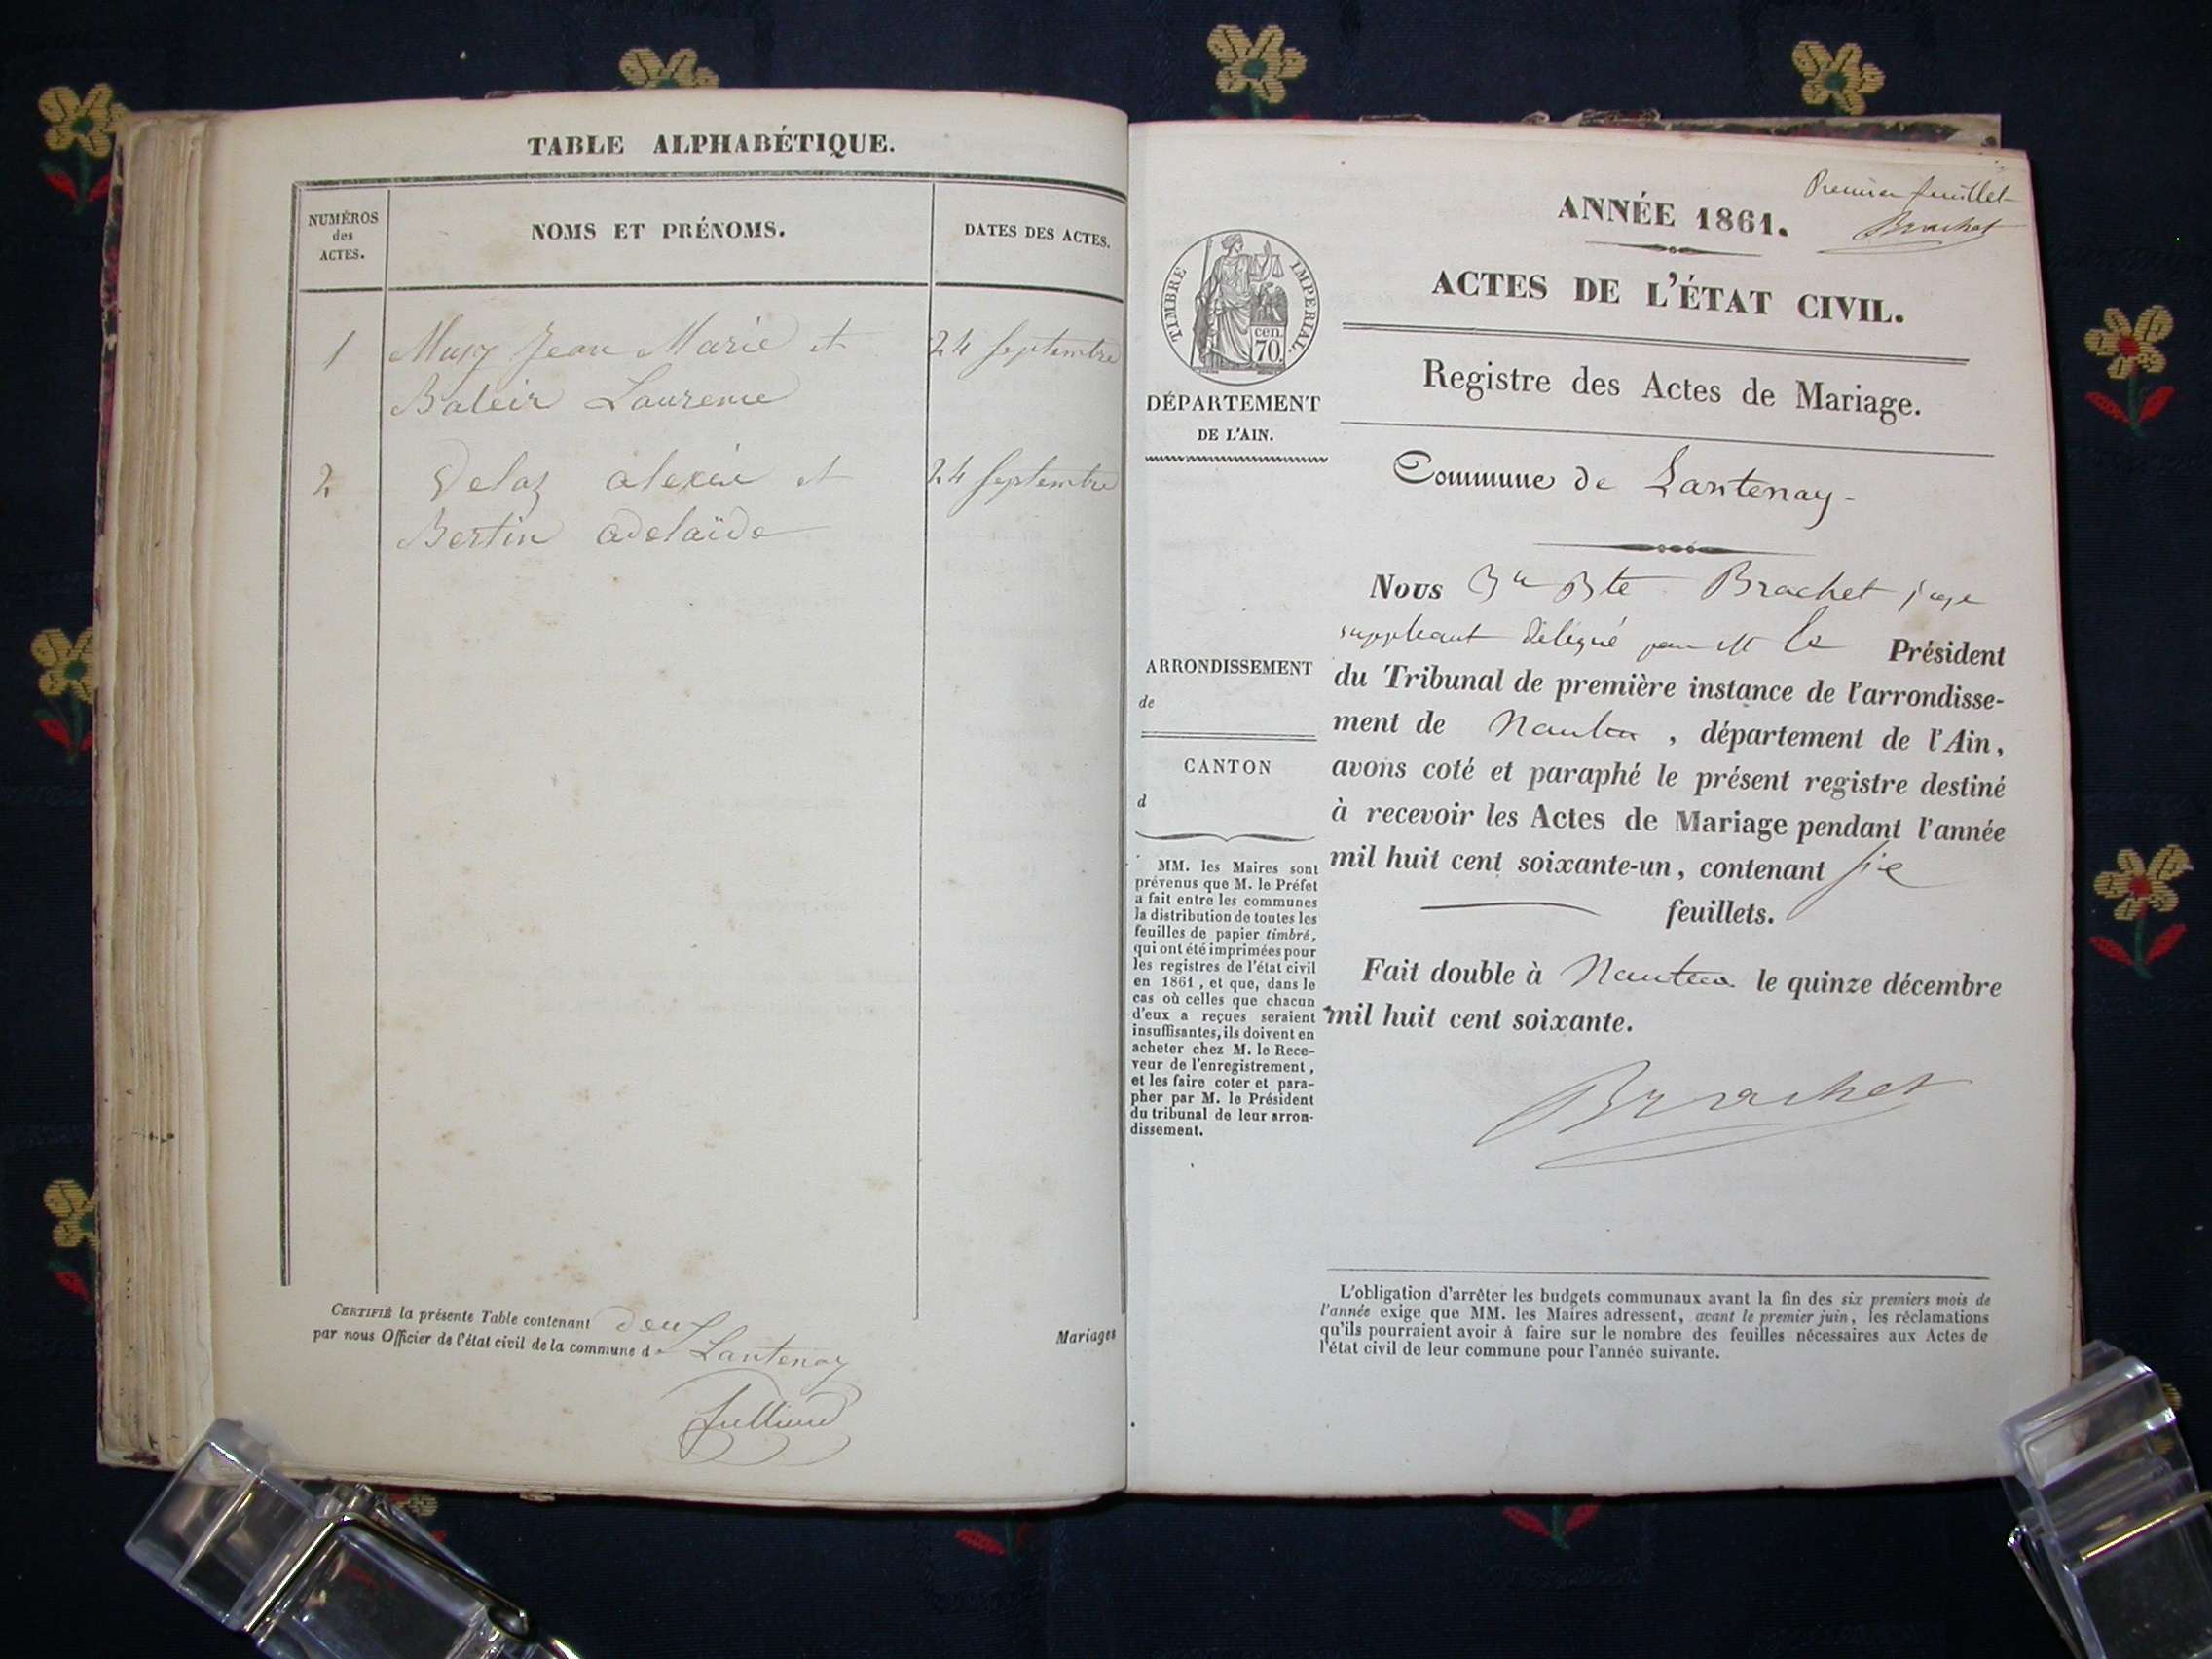 TABLE ALPHABÉTIQUE.
NUMÉROS
des
ACTES.
NOMS ET PRÉNOMS.
DATES DES ACTES.
1 Jean Marie et 24 septembre
Laurence
2 Delaz alexis et 24 septembre
Bertin adelaïde
CERTIFIÉ la présente Table contenant deux Mariages
par nous Officier de l'état civil de la commune de Lantenay
Premier feuillet
Brachet
ANNÉE 1861.
ACTES DE L'ÉTAT CIVIL.
Registre des Actes de Mariage.
Commune de Lantenay.
TIMBRE IMPERIAL.
cen.
70.
DÉPARTEMENT
DE L'AIN.
ARRONDISSEMENT
de
CANTON
d
MM. les Maires sont
prévenus que M. le Préfet
a fait entre les communes
la distribution de toutes les
feuilles de papier timbré,
qui ont été imprimées pour
les registres de l'état civil
en 1861, et que, dans le
cas où celles que chacun
d'eux a reçues seraient
insuffisantes, ils doivent en
acheter chez M. le Rece-
veur de l'enregistrement,
et les faire coter et para-
pher par M. le Président
du tribunal de leur arron-
dissement.
Nous Bte Brachet juge
suppléant délégué par M le Président
du Tribunal de première instance de l'arrondisse-
ment de Nantua, département de l'Ain,
avons coté et paraphé le présent registre destiné
à recevoir les Actes de Mariage pendant l'année
mil huit cent soixante-un, contenant six
feuillets.
Fait double à Nantua le quinze décembre
mil huit cent soixante.
Brachet
L'obligation d'arrêter les budgets communaux avant la fin des six premiers mois de
l'année exige que MM. les Maires adressent, avant le premier juin, les réclamations
qu'ils pourraient avoir à faire sur le nombre des feuilles nécessaires aux Actes de
l'état civil de leur commune pour l'année suivante.